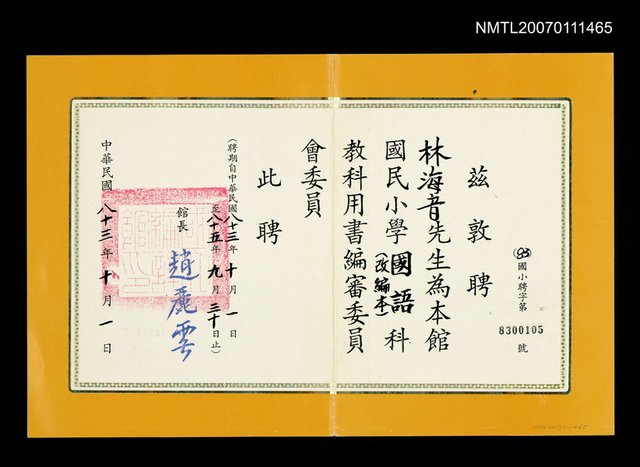 NMTL20070111465
茲敦聘
㊇國小聘字第8300105號
林海音先生為本館
國民小學國語(改編本)科
教科用書編審委員
會委員
此聘
(聘期自中華民國八十三年十月一日
至八十五年九月三十日止)
館長 趙麗雲
中華民國八十三年十月一日